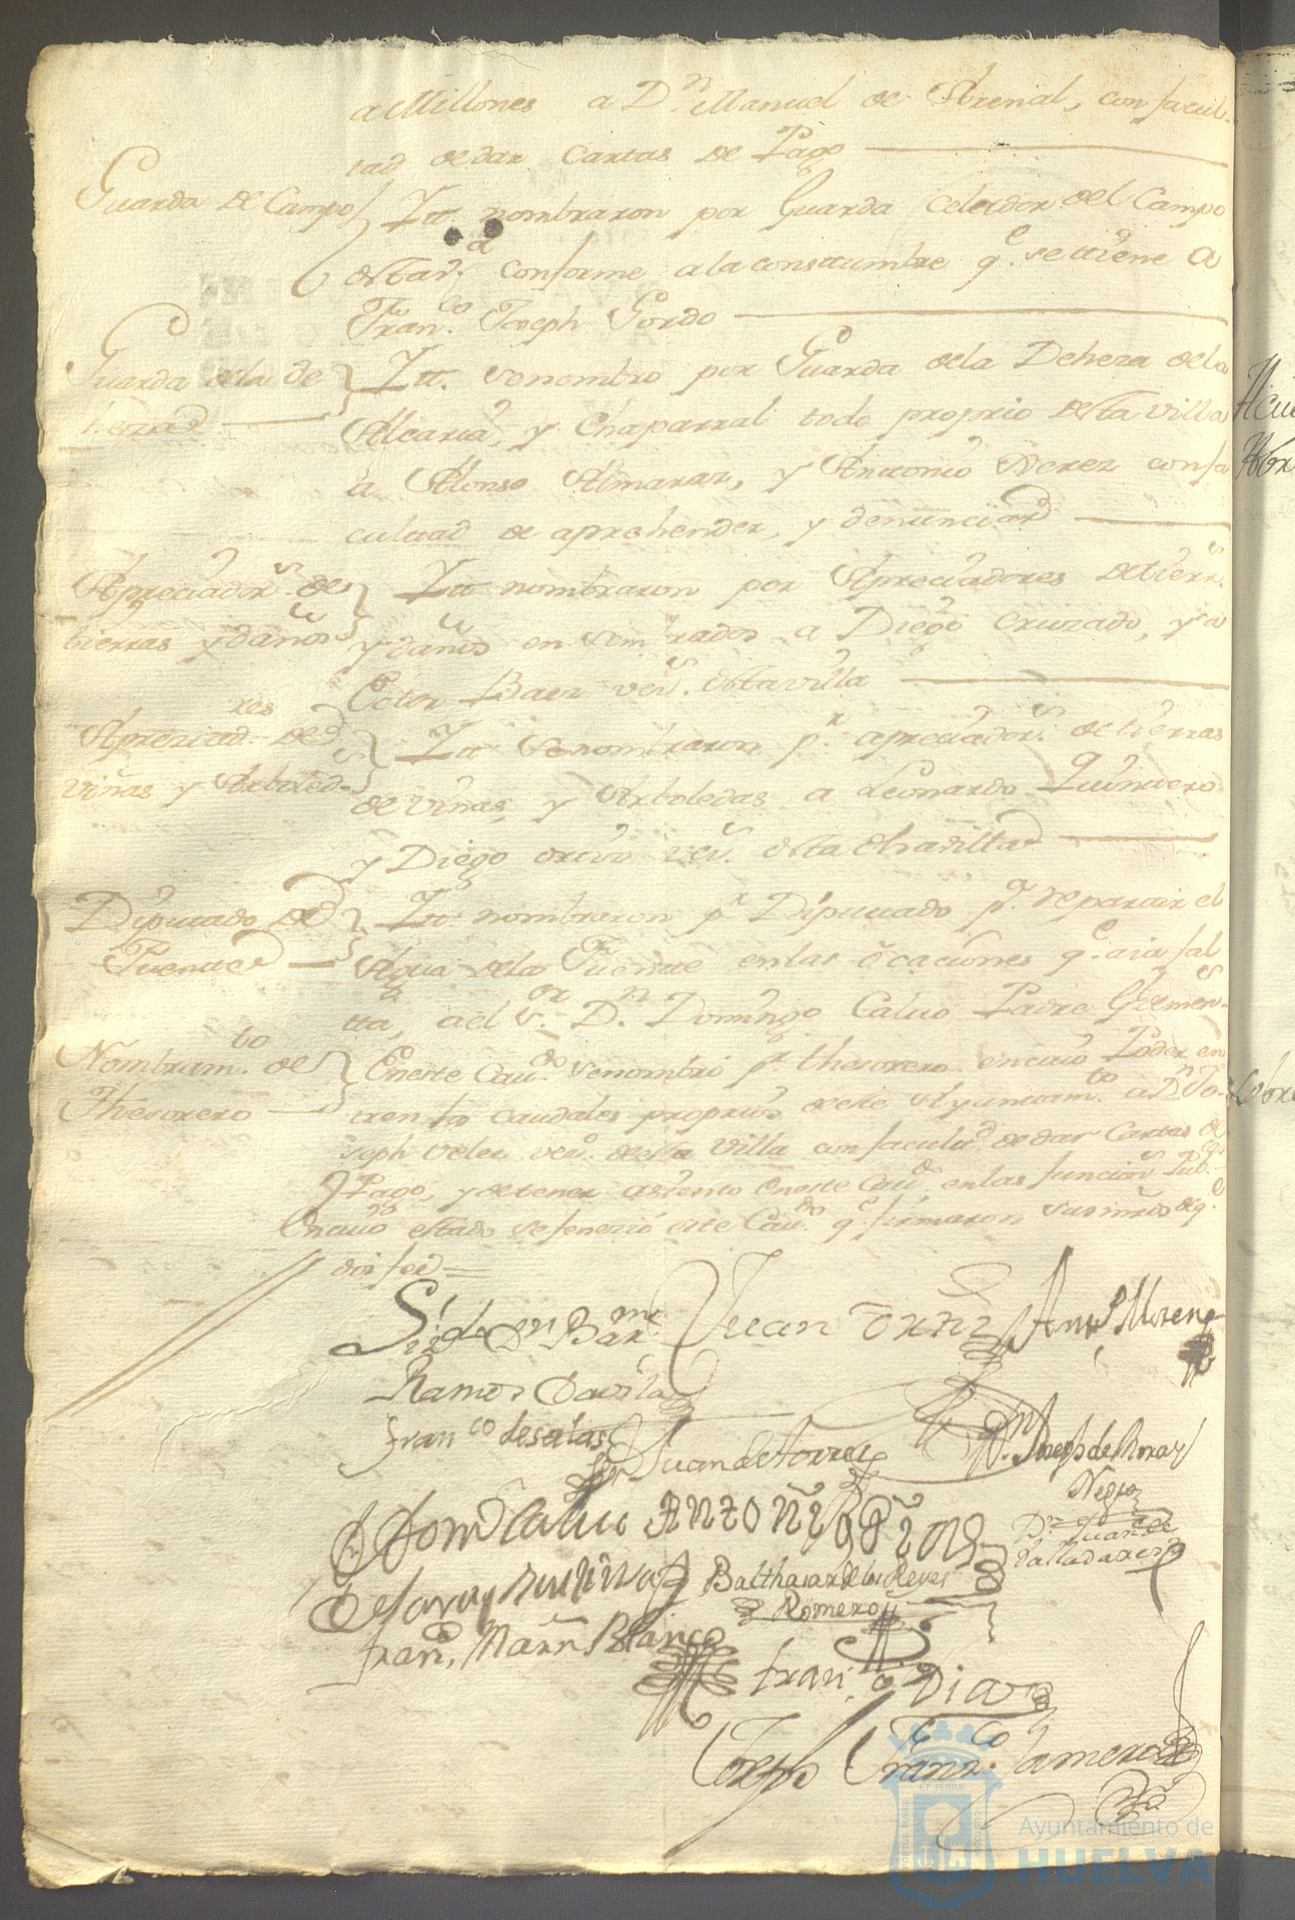 a Millones a D.n Manuel de Arenal, con facul-
tad de dar Cartas de Pago
Guarda de Campo
Itt. nombraron por Guarda Celador del Campo
conforme a la constumbre q.e se tiene a
Fran.co Joseph Gordo
Guarda de la de
heza
Itt. se nombro por Guarda de la Deheza de la
Alcaria, y Chaparral todo proprio desta villa
a Alonso Almaraz, y Antonio Perez con fa
cultad de aprehender, y denunciar
Apreciador.s de
tierras y daños
Itt. nombraron por Apreciadores de tierr.s
y daños en sembrados a Diego Cruzado, y a
Baez vez.s desta villa
Apreziad.res de
viñas y Arboled.s
Itt. se nombraron p.r apreciador.s de tierras
de viñas, y Arboledas a Leonardo Quintero
y Diego vez.s desta dha villa
Diputado de
Fuente
Itt. nombraron p.r Diputado p.a reparar el
Agua de la Fuente en las ocaciones q.e aia fal
tta, a el s.or D.n Domingo Calvo Padre
Nombram.to de
Thesorero
En este Cav.do se nombró p.r thesorero en cuio Poder en
tren los caudales proprios de este Ayuntam.to a D.n Jo-
seph Velez vez.o de esta Villa con facult.d de dar Cartas de
Pago, y de tener asiento en este Cav.do en las funcion.s Pub.cas
En cuio estado se fenezió este Cav.do q.e firmaron sus mrds de q.e
doi fee =
Bar.me
Ramos Davila
Juan Ortiz
Moreno
Fran.co de Salas
Juan de Torres
D.n Joseph de
Negro
Dom.o Calvo
D.n Juan de
Valladares
Balthasar de los Reyes
Romero
Fran.co Marn Blanco
Fran.co Diaz
Joseph Fran.co Romero
PORTUS MARIS
ET TERRAE
CUSTODIA
Ayuntamiento de
HUELVA